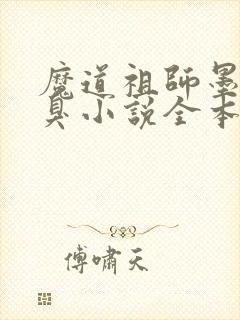 魔道祖師墨
臭小說全本
傅嘯天